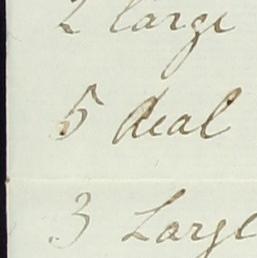 2 large
5 deal
3 Large